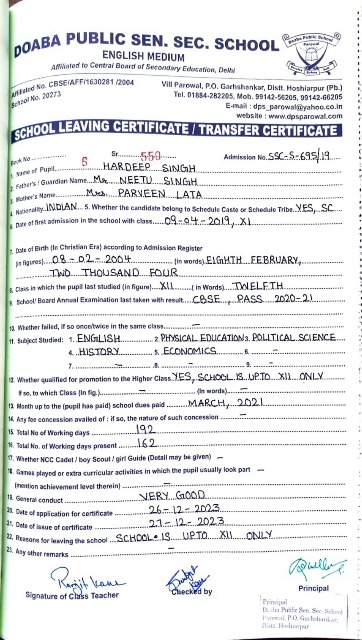 DOABA PUBLIC SEN. SEC. SCHOOL
ENGLISH MEDIUM
Affiliated to Central Board of Secondary Education, Delhi
Affiliated No. CBSE/AFF/1630281 /2004
School No. 20273
Vill Parowal, P.O. Garhshankar, Distt. Hoshiarpur (Pb.)
Tel. 01884-282205, Mob. 99142-56205, 99142-66205
E-mail : dps_parowal@yahoo.co.in
website : www.dpsparowal.com
SCHOOL LEAVING CERTIFICATE / TRANSFER CERTIFICATE
Book No. 6 Sr. 550 Admission No. SSC-S-695/19
1. Name of Pupil HARDEEP SINGH
2. Father's / Guardian Name Mr. NEETU SINGH
3. Mother's Name Mrs. PARVEEN LATA
4. Nationality INDIAN 5. Whether the candidate belong to Schedule Caste or Schedule Tribe. YES, SC
6. Date of first admission in the school with class 09-04-2019, XI
7. Date of Birth (In Christian Era) according to Admission Register
(in figures) 08-02-2004 (in words) EIGHTH FEBRUARY,
TWO THOUSAND FOUR
8. Class in which the pupil last studied (in figure) XII (in words) TWELFTH
9. School/ Board Annual Examination last taken with result CBSE, PASS 2020-21
10. Whether failed, if so once/twice in the same class —
11. Subject Studied: 1. ENGLISH 2. PHYSICAL EDUCATION 3. POLITICAL SCIENCE
4. HISTORY 5. ECONOMICS 6. —
7. — 8. — 9. —
12. Whether qualified for promotion to the Higher Class YES, SCHOOL IS UPTO XII ONLY
If so, to which Class (in fig.) — (in Words) —
13. Month up to the (pupil has paid) school dues paid MARCH, 2021
14. Any fee concession availed of : if so, the nature of such concession —
15. Total No of Working days 192
16. Total No. of Working days present 162
17. Whether NCC Cadet / boy Scout / girl Guide (Detail may be given) —
18. Games played or extra curricular activities in which the pupil usually took part —
(mention achievement level therein) —
19. General conduct VERY GOOD
20. Date of application for certificate 26-12-2023
21. Date of issue of certificate 27-12-2023
22. Reasons for leaving the school SCHOOL IS UPTO XII ONLY
23. Any other remarks —
Ranjit Kaur
Signature of Class Teacher
Checked by
Principal
Principal
Doaba Public Sen. Sec. School
Parowal, P.O. Garhshankar,
Distt. Hoshiarpur